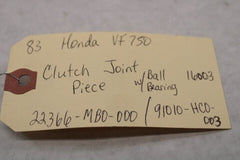 83 Honda VF 750
Clutch Joint Piece w/ Ball Bearing 16003
22366-MB0-000 / 91010-HC0-003